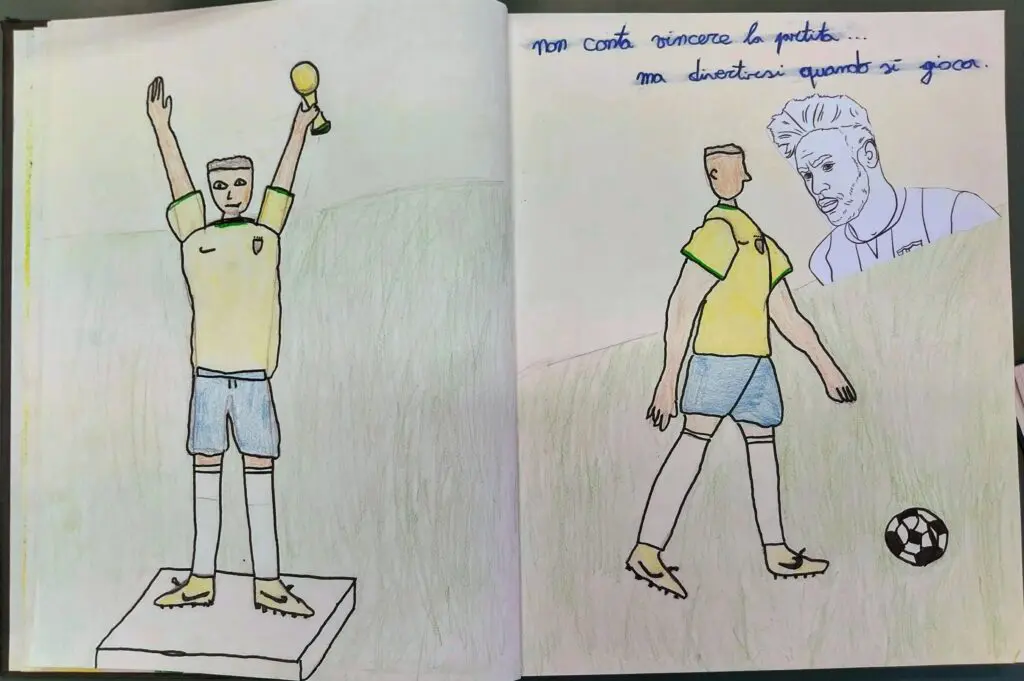 non conta vincere la partita ...
ma divertirsi quando si gioca.